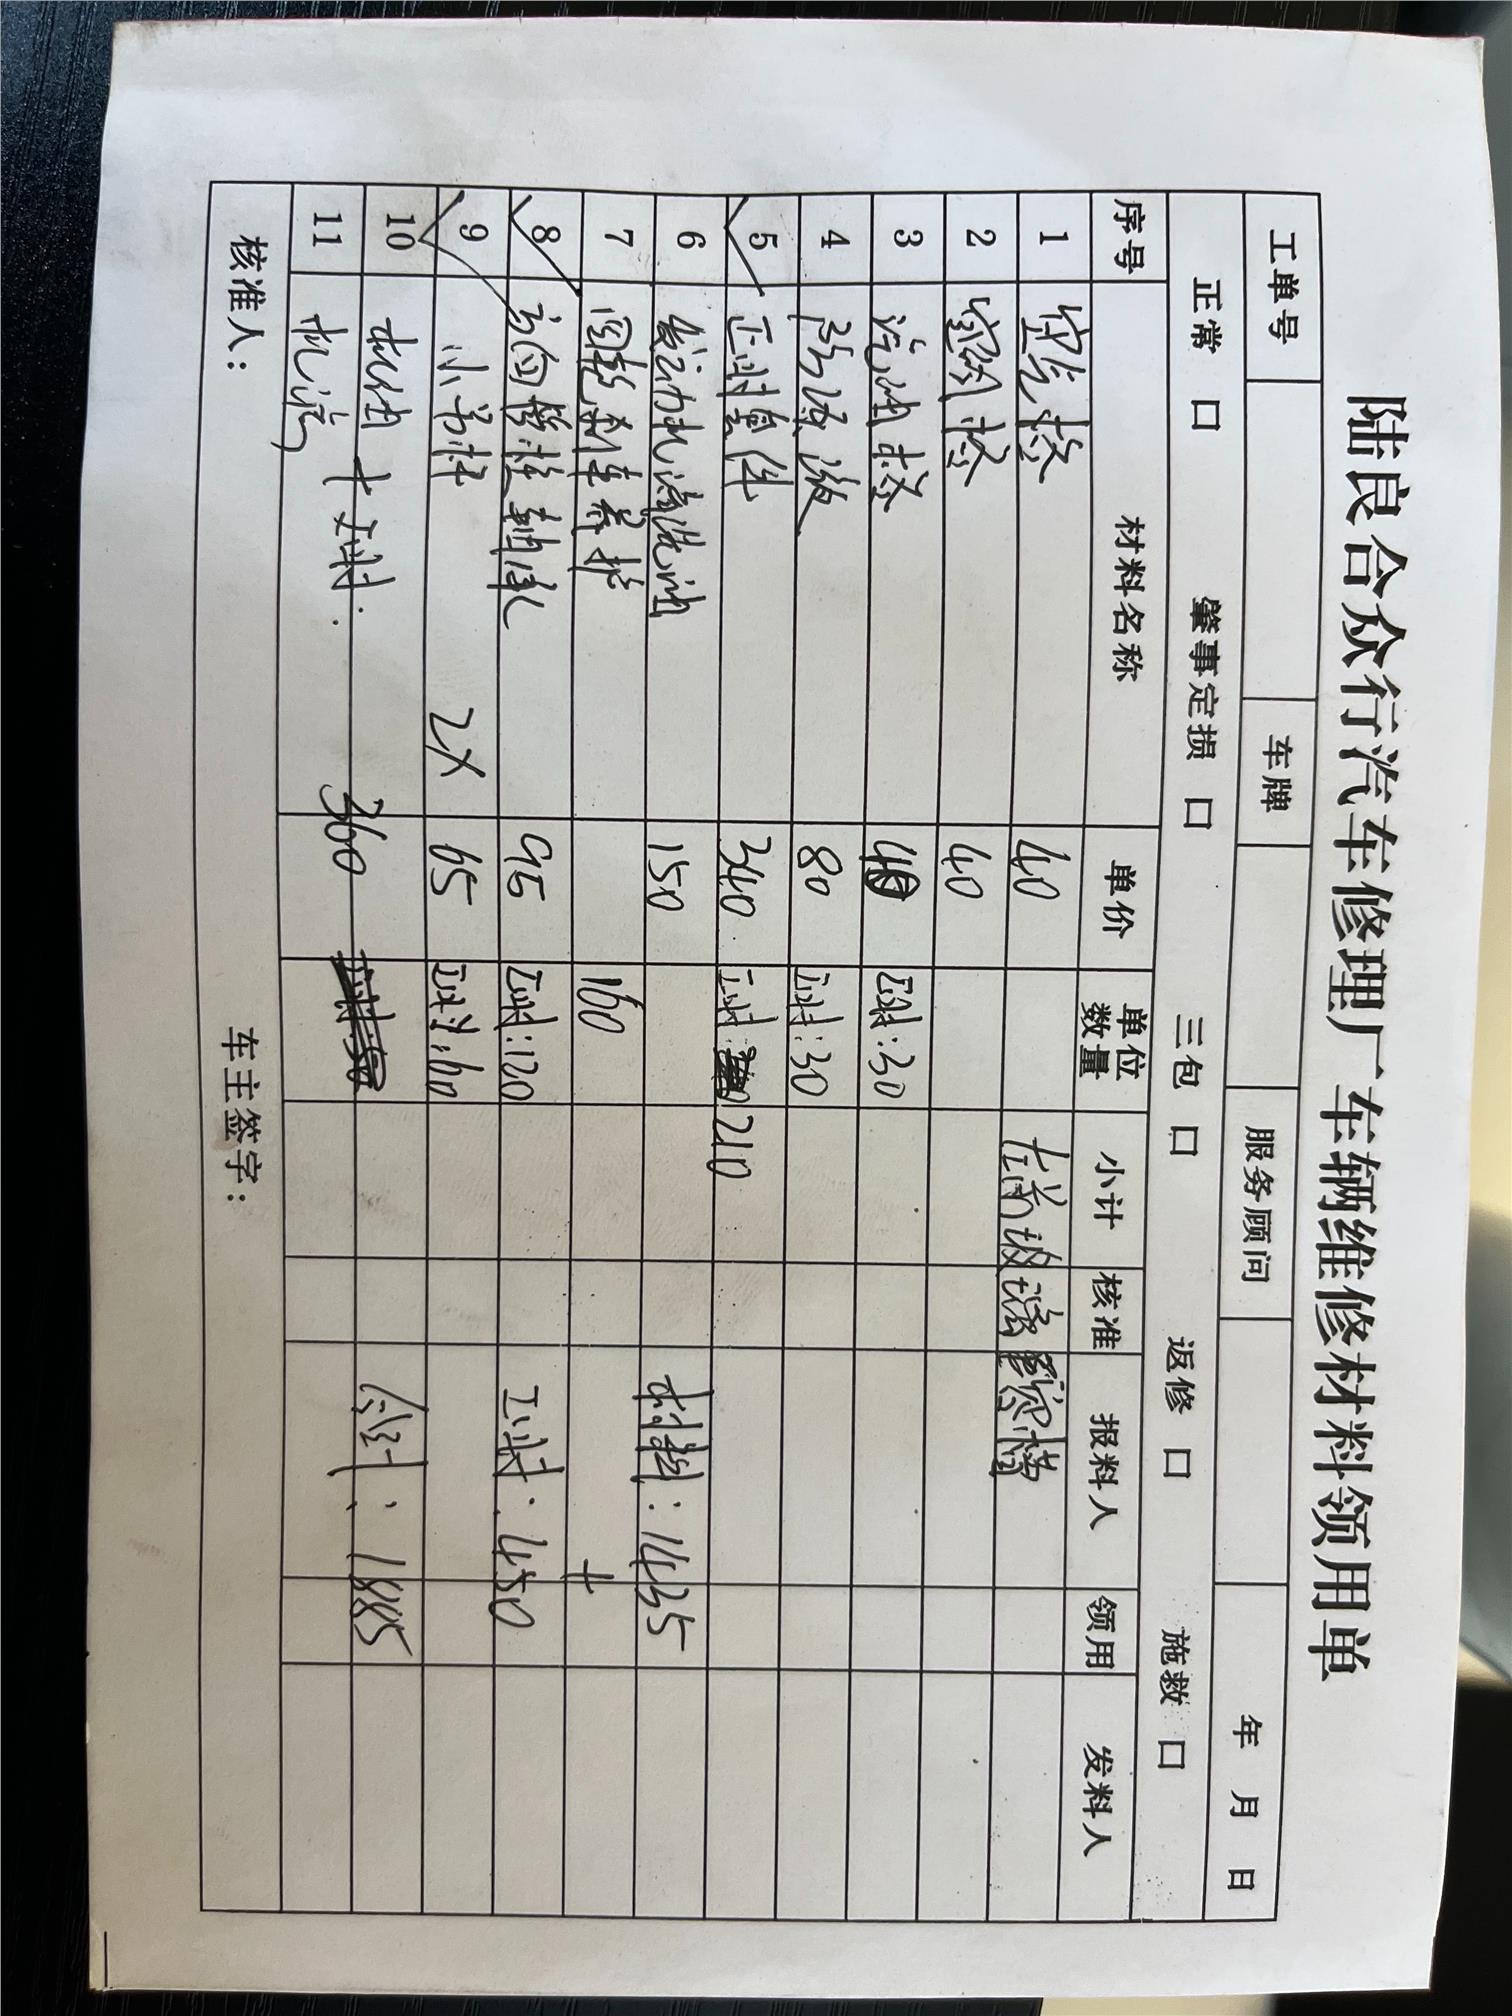 陆良合众行汽车修理厂车辆维修材料领用单
工单号 车牌 服务顾问 年 月 日
正常 口 肇事定损 口 三包 口 返修 口 施救 口
序号 材料名称 单价 单位数量 小计 核准 报料人 领用 发料人
1 空气格 40 左前玻璃
2 空调格 40
3 汽油格 40 工时:30
4 防冻液 80 工时:30
5 正时套件 340 工时 210
6 发动机清洗油 150 材料:1435
7 四轮刹车养护 160 +
8 方向管柱轴承 95 工时:120 工时:450
9 小吊杆 2X 65 工时:60
10 机油+工时 360 合计:1885
11 机滤
核准人: 车主签字: